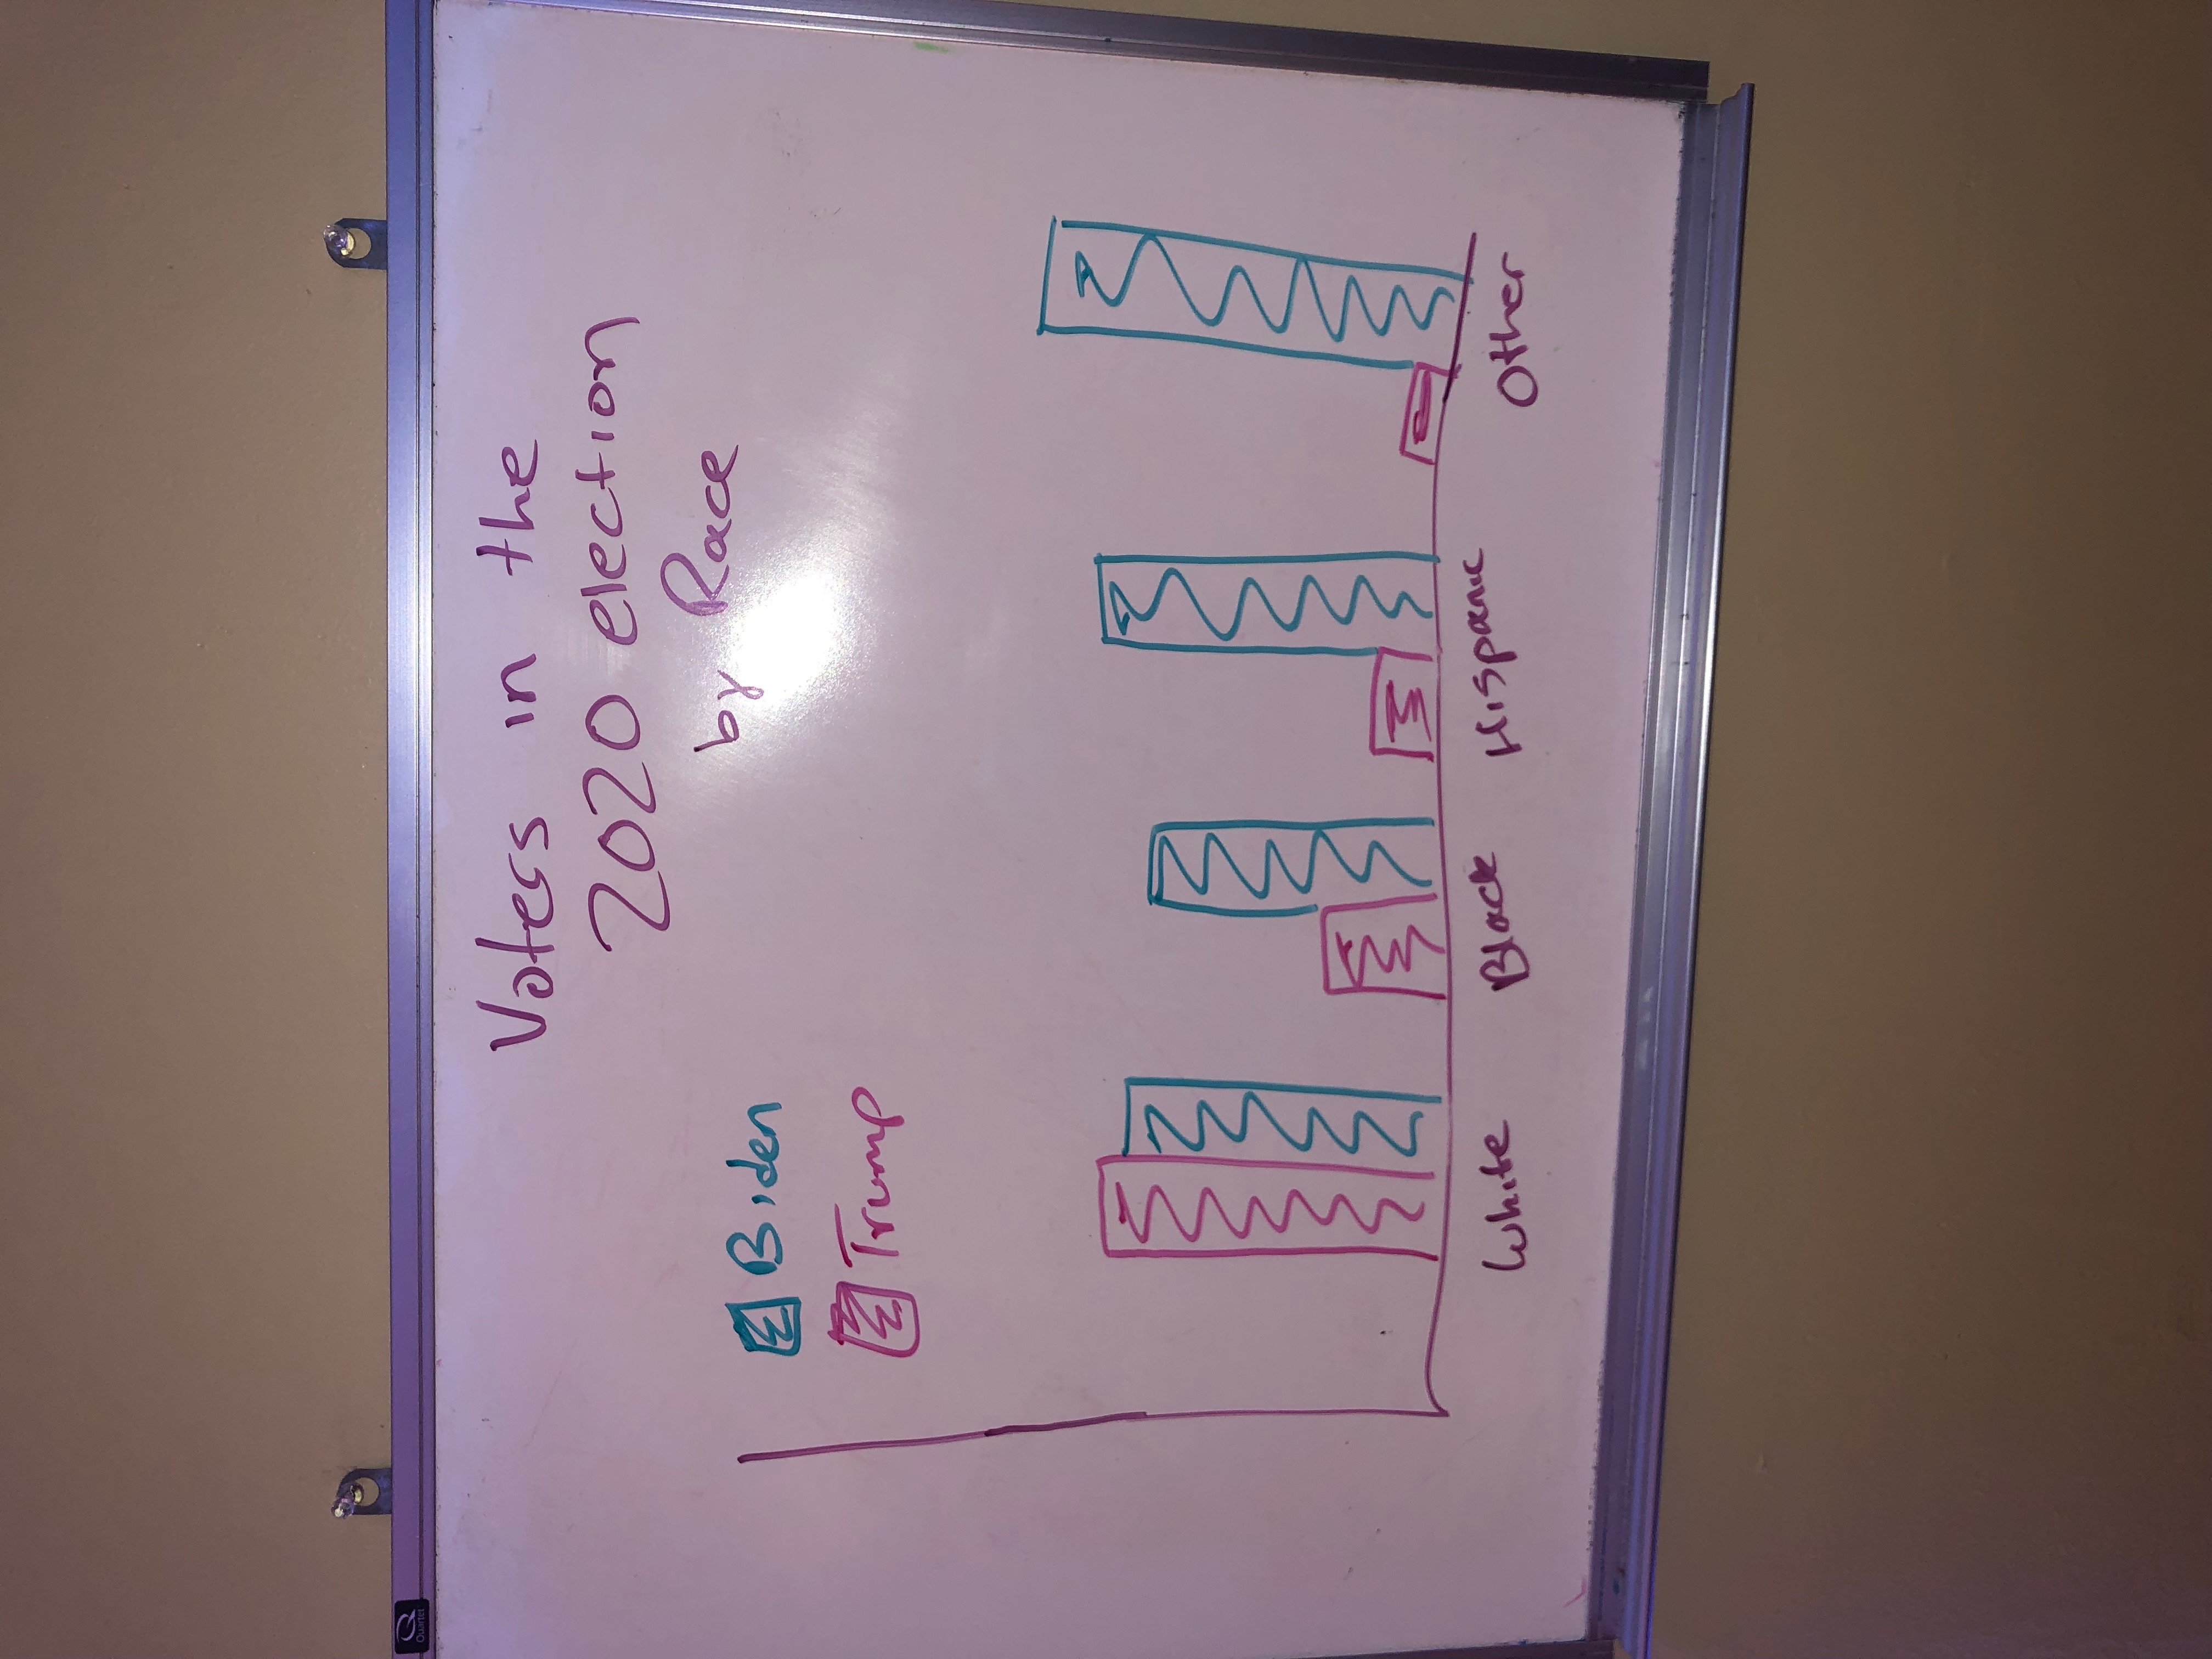 Quartet
Voters in the
2020 election
by Race
Biden
Trump
White Black Hispanic Other